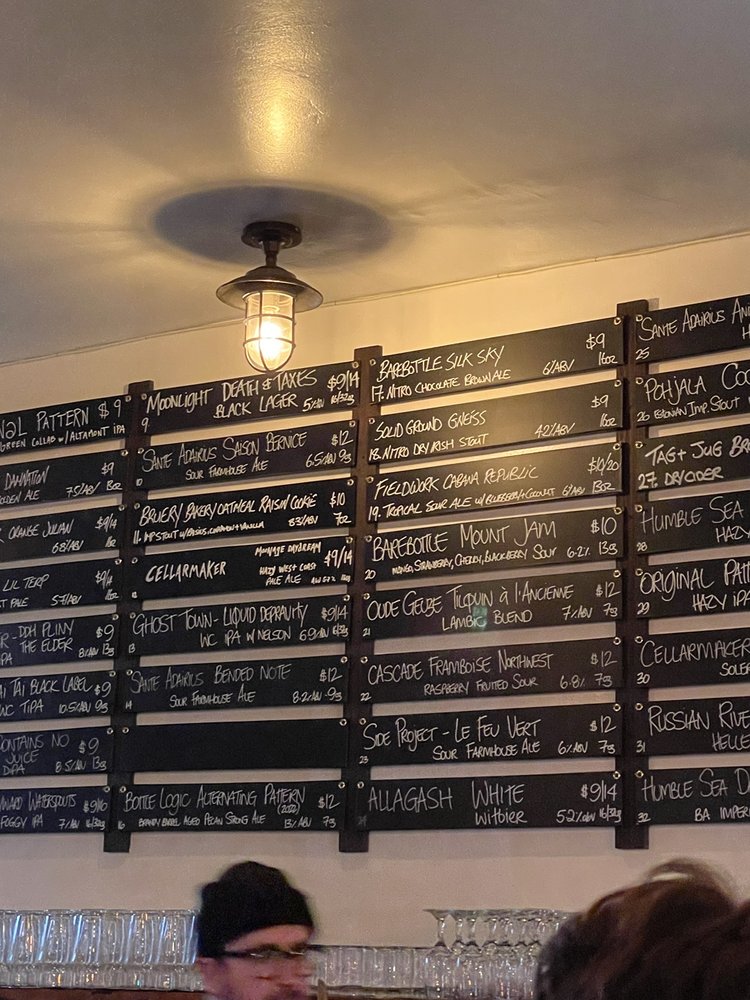 PATTERN $9
GREEN COLLAB w/ ALTAMONT IPA
DAMNATION $9
ALE 7.5% ABV 13oz
ORANGE JULIAN $9/14
6.8% ABV
LIL TERP
PALE 5.7% ABV
DDH PLINY $9
THE ELDER
IPA 8% ABV 13g
TAI BLACK LABEL $9
WC TIPA 10.5% ABV 9g
CONTAINS NO $9
JUICE
DIPA 8.5% ABV 13g
WATERSPOUTS
FOGGY IPA 7% ABV 16/32g
MOONLIGHT DEATH & TAXES $9/14
9. BLACK LAGER 5% ABV 16/32g
SANTE ADAIRIUS SAISON BERNICE $12
10 SOUR FARMHOUSE ALE 6.5% ABV 9g
BRUERY BAKERY OATMEAL RAISIN COOKIE $10
11. IMP STOUT w/ RAISINS, CINNAMON + VANILLA 8.3% ABV 7oz
CELLARMAKER MOHAVE DAYDREAM $9/14
HAZY WEST COAST
PALE ALE
GHOST TOWN - LIQUID DEPRAVITY $9/14
13 WC IPA W/ NELSON 6.9% ABV 16/32g
SANTE ADAIRIUS BENDED NOTE $12
14 SOUR FARMHOUSE ALE 8.2% ABV 9g
BOTTLE LOGIC ALTERNATING PATTERN (2022) $12
16 BRANDY BARREL AGED PECAN STRONG ALE 13% ABV 7g
BAREBOTTLE SILK SKY $9
17. NITRO CHOCOLATE BROWN ALE 6% ABV 16oz
SOLID GROUND GNEISS $9
18. NITRO DRY IRISH STOUT 4.2% ABV 16oz
FIELDWORK CABANA REPUBLIC $10/20
19. TROPICAL SOUR ALE w/ BLUEBERRY + COCONUT 6% ABV 13oz
BAREBOTTLE MOUNT JAM $10
20 MANGO, STRAWBERRY, CHERRY, BLACKBERRY SOUR 6.2% 13g
OUDE GEUZE TILQUIN À L'ANCIENNE $12
21 LAMBIC BLEND 7% ABV 7g
CASCADE FRAMBOISE NORTHWEST $12
22 RASPBERRY FRUITED SOUR 6.8% 7g
SIDE PROJECT - LE FEU VERT $12
23 SOUR FARMHOUSE ALE 6% ABV 7g
ALLAGASH WHITE $9/14
24 WITBIER 5.2% ABV 16/32g
SANTE ADAIRIUS
25
POHJALA
26 ESTONIAN IMP. STOUT
TAG + JUG
27. DRY CIDER
HUMBLE SEA
28 HAZY
ORIGINAL
29 HAZY IPA
CELLARMAKER
30
RUSSIAN
31 HELLE
HUMBLE SEA
32 BA IMPER